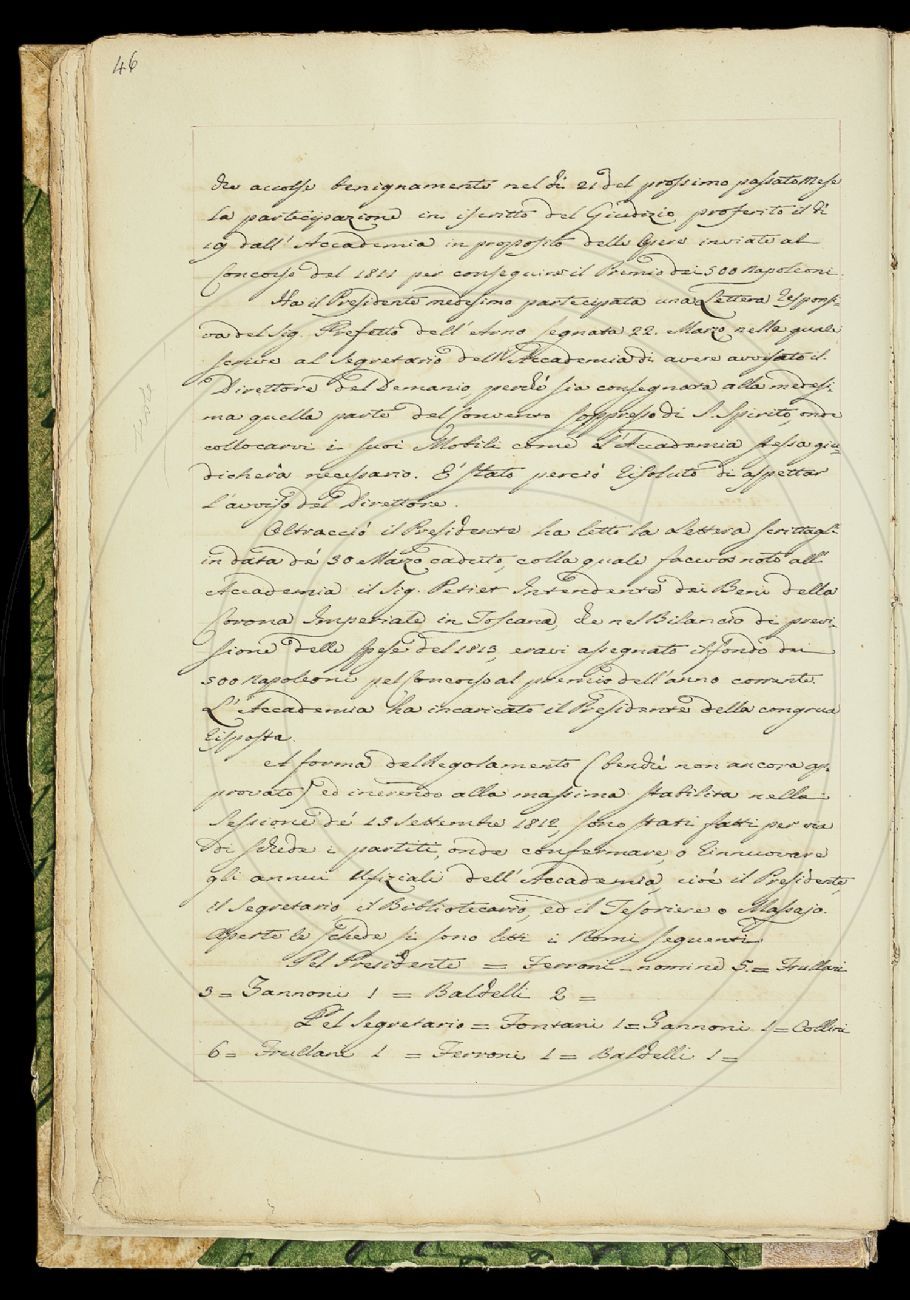 46
che accolse benignamente nel dì 21 del prossimo passato Mese
la partecipazione in iscritto del Giudizio proferito il dì
19 dall'Accademia in proposito delle Opere inviate al
Concorso del 1811 per conseguire il Premio dei 500 Napoleoni.
Ha il Presidente medesimo partecipata una Lettera Responsi-
va del Sig. Prefetto dell'Arno segnata 22. Marzo nella quale
scrive al Segretario dell'Accademia di avere avvisato il
Direttore del Demanio perché sia consegnata alla medesi-
ma quella parte del Convento soppresso di S. Spirito, onde
collocarvi i suoi Mobili come l'Accademia stessa giu-
dicherà necessario. E' stato perciò risoluto di aspettar
l'avviso del Direttore.
Oltracciò il Presidente ha letto la Lettera scrittagli
in data dé 30 Marzo caduto, colla quale faceva noto all'
Accademia il Sig. Petiet Intendente dei Beni della
Corona Imperiale in Toscana, che nel Bilancio di previ-
sione delle spese del 1813, eravi assegnato il fondo dei
500 Napoleoni pel Concorso al premio dell'anno corrente.
L'Accademia ha incaricato il Presidente della congrua
risposta.
A forma del Regolamento (benchè non ancora ap-
provato) ed inerendo alla massima stabilita nella
Sessione dé 15 Settembre 1812, sono stati fatti per via
di schede i partiti, onde confermare, o rinnuovare
gli annui Ufiziali dell'Accademia, cioè il Presidente,
il Segretario, il Bibliotecario, ed il Tesoriere o Massajo.
Aperte le schede si sono letti i Nomi seguenti
Pel Presidente = Ferroni nomine 5 = Frullani
3 = Zannoni 1 = Baldelli 2 =
Pel Segretario = Fontani 1 = Zannoni 1 = Collini
6 = Frullani 1 = Ferroni 1 = Baldelli 1 =